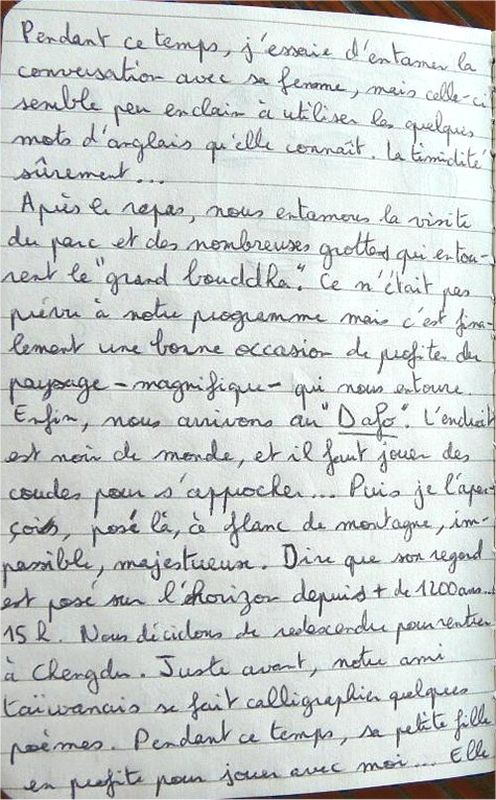 Pendant ce temps, j'essaie d'entamer la
conversation avec sa femme, mais celle-ci
semble peu enclain à utiliser les quelques
mots d'anglais qu'elle connaît. La timidité
sûrement...
Après le repas, nous entamons la visite
du parc et des nombreuses grottes qui entou-
rent le "grand bouddha". Ce n'était pas
prévu à notre programme mais c'est fina-
lement une bonne occasion de profiter du
paysage - magnifique - qui nous entoure.
Enfin, nous arrivons au "Dafo". L'endroit
est noir de monde, et il faut jouer des
coudes pour s'approcher... Puis je l'aper-
çois, posé là, à flanc de montagne, im-
passible, majestueux. Dire que son regard
est posé sur l'horizon depuis + de 1200 ans...
15 h. Nous décidons de redescendre pour rentrer
à Chengdu. Juste avant, notre ami
taïwanais se fait calligraphier quelques
poèmes. Pendant ce temps, sa petite fille
en profite pour jouer avec moi... Elle